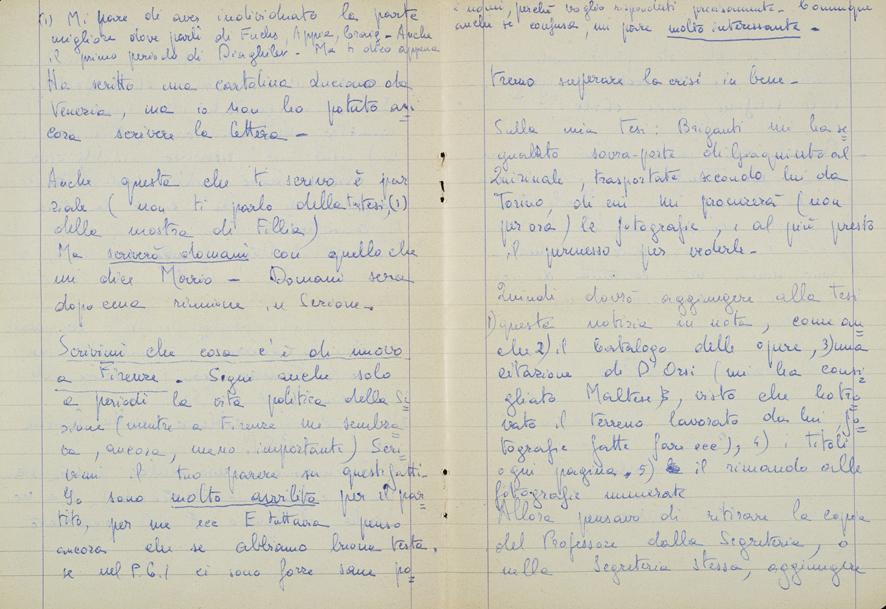 (1) Mi pare di aver individuato la parte
migliore dove parli di Fuchs, Appia, Craig - Anche
il primo periodo di Diaghilev - Ma ti dico appena
Ha scritto una cartolina Luciano da
Venezia, ma io non ho potuto an
cora scrivere la lettera -
Anche questa che ti scrivo è par
ziale (non ti parlo della tua tesi, (1)
della mostra di Fillia)
Ma scriverò domani con quello che
mi dice Mario - Domani sera
dopo cena riunione in Sezione -
Scrivimi che cosa c'è di nuovo
a Firenze. Segui anche solo
a periodi la vita politica della Se
zione (mentre a Firenze mi sembra
va, ancora, meno importante) Scri
vimi il tuo parere su questi fatti -
Io sono molto avvilita per il par
tito, per me ecc E tuttavia penso
ancora che se abbiamo buona testa,
se nel P.C.I ci sono forze sane po
e nomi, perché voglio risponderti precisamente. Comunque
anche se confusa, mi pare molto interessante -
tremo superare la crisi in bene -
Sulla mia Tesi: Briganti mi ha se
gnalato sovra-porte di Giaquinto al
Quirinale, trasportate secondo lui da
Torino, di cui mi procurerà (non
per ora) le fotografie, e al più presto
il permesso per vederle -
Quindi dovrò aggiungere alla Tesi
1) questa notizia in nota, come an
che 2) il Catalogo delle opere, 3) una
citazione di D'Orsi (mi ha consi
gliato Maltese, visto che ho tro
vato il terreno lavorato da lui, fo
tografie fatte fare ecc), 4) i titoli
ogni pagina, 5) il rimando alle
fotografie numerate
Allora pensavo di ritirare la copia
del Professore dalla Segreteria, o
nella Segreteria stessa, aggiungere